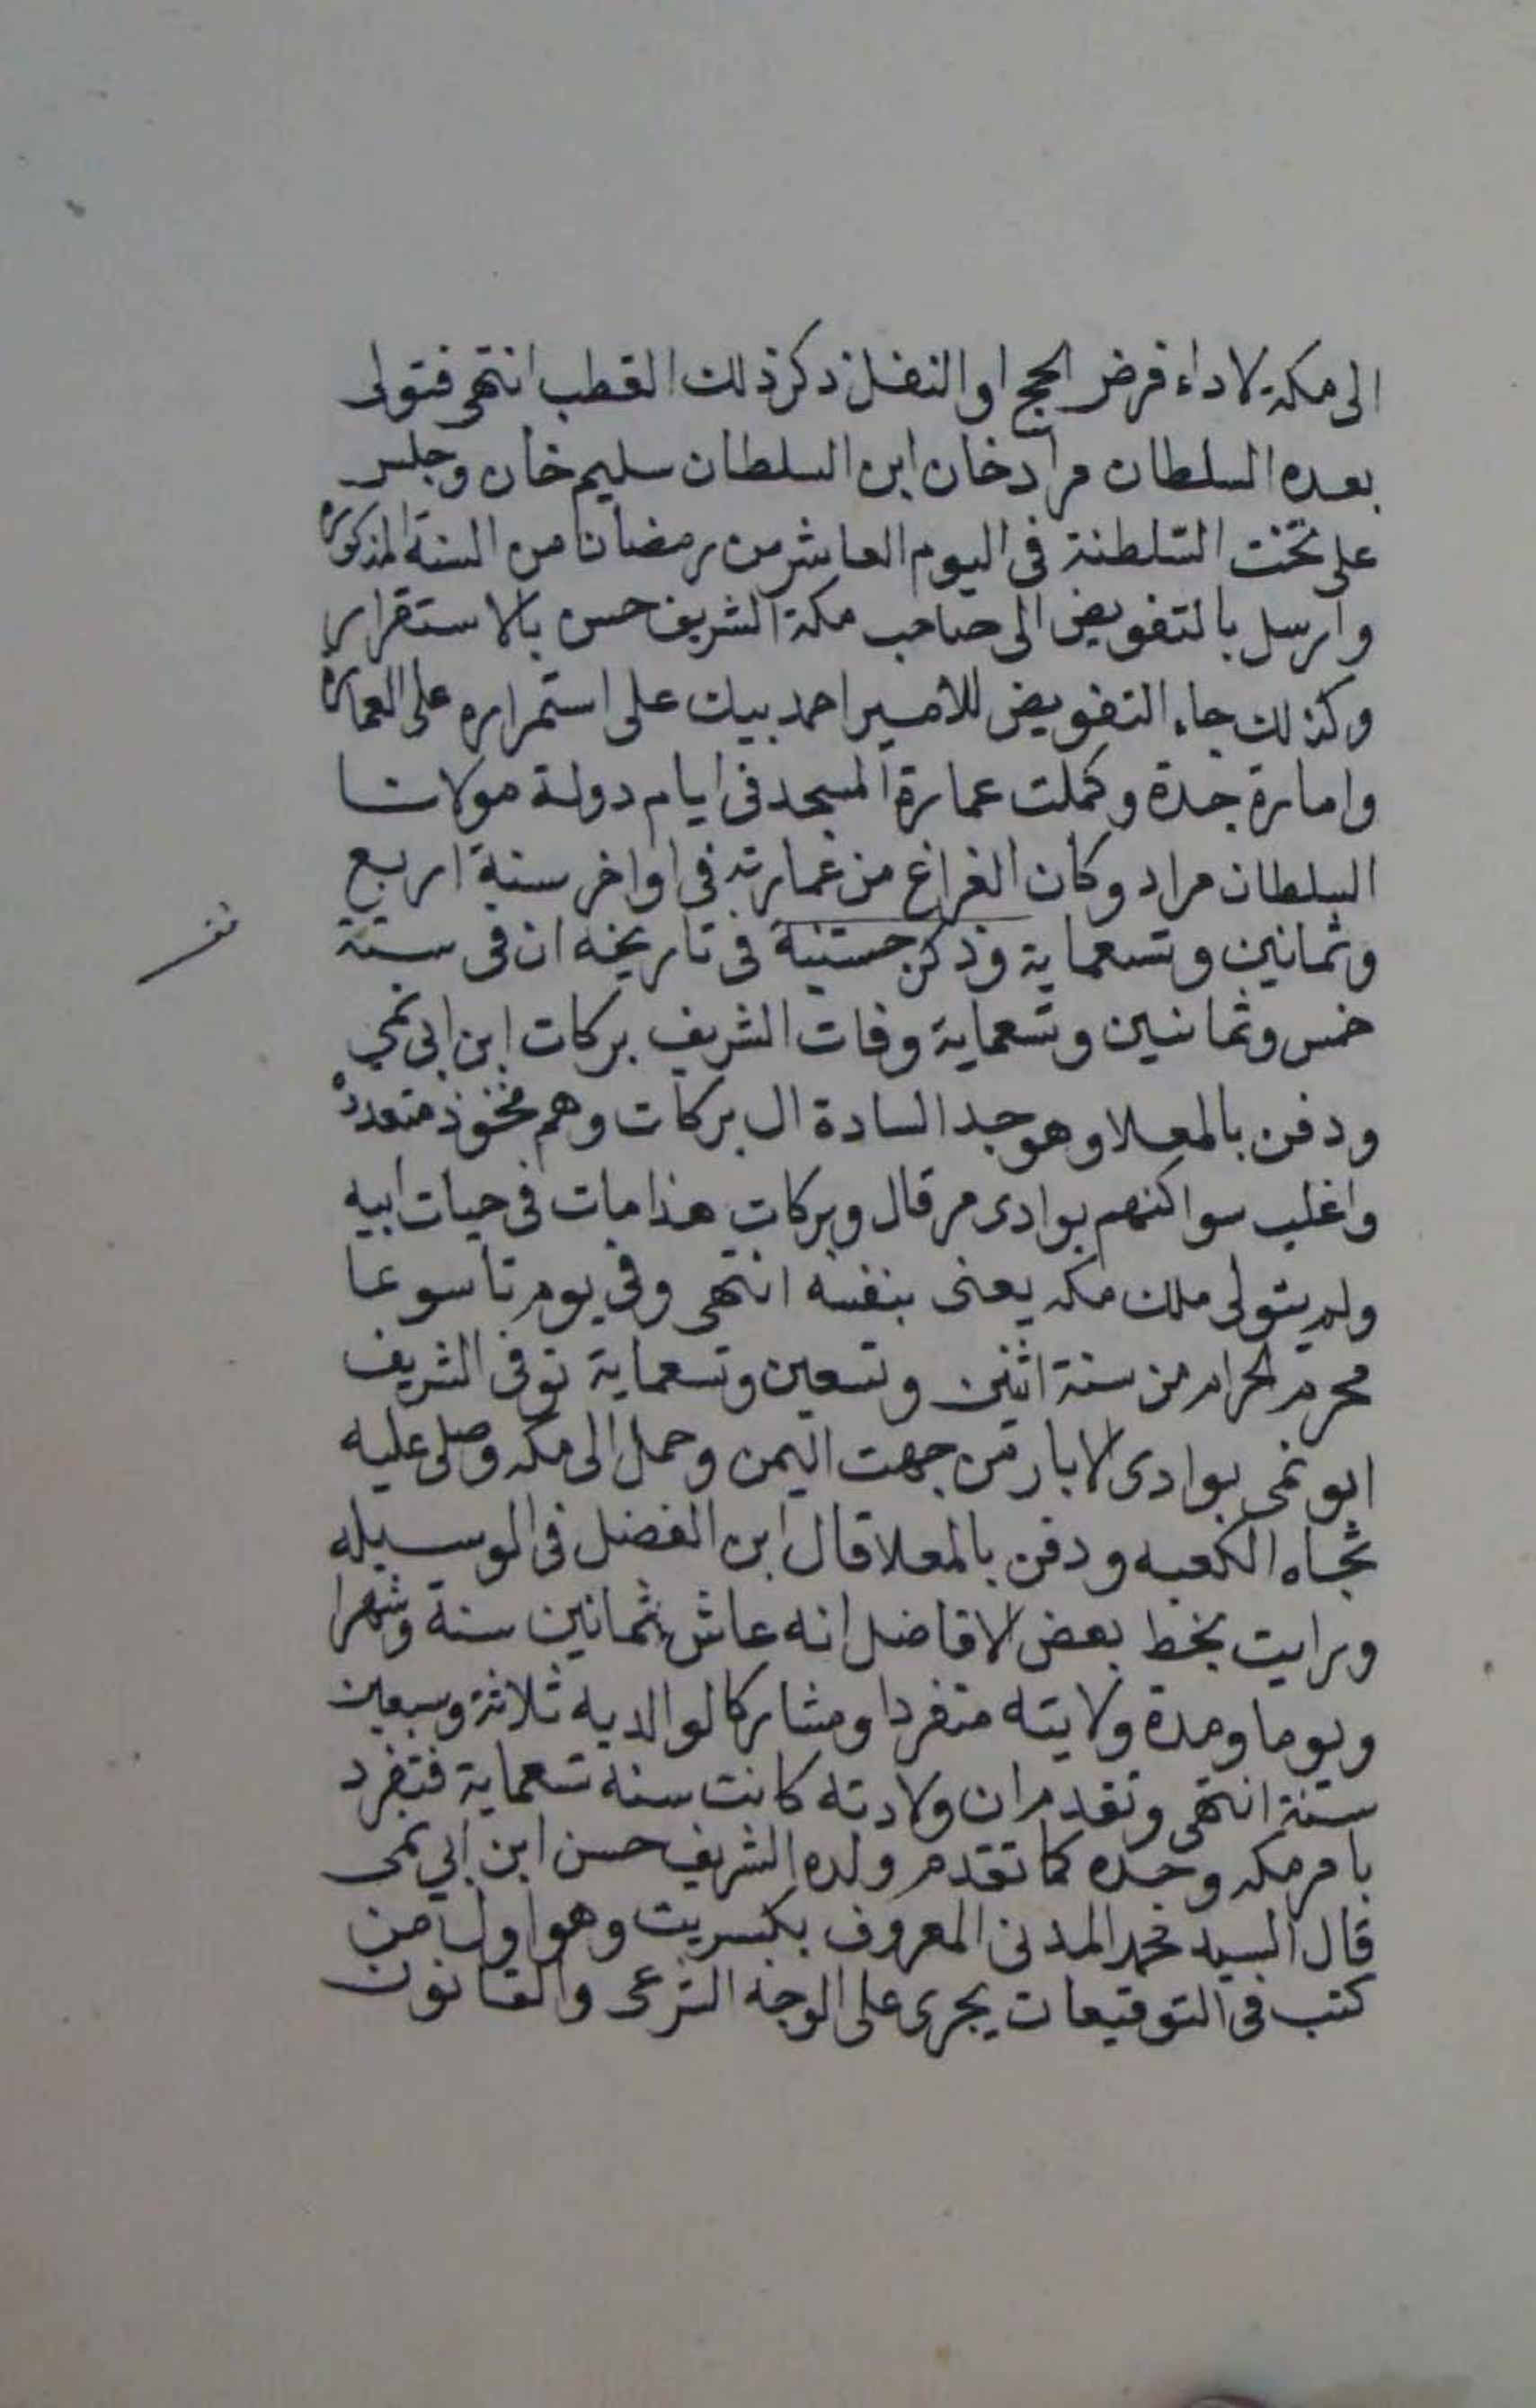 الى مكة لاداء فرض الحج او النفل ذكر ذلك القطب انتهى فتولى
بعده السلطان مراد خان ابن السلطان سليم خان وجلس
على تخت السلطنة فى اليوم العاشر من رمضان من السنة المذكورة
وارسل بالتفويض الى صاحب مكة الشريف حسن بالاستقرار
وكذلك جاء التفويض للامير احمد بيك على استمراره على العمارة
وامارة جدة وكملت عمارة المسجد فى ايام دولة مولانا
السلطان مراد وكان الفراغ من عمارته فى اواخر سنة اربع
وثمانين وتسعماية وذكر فى تاريخه ان فى سنة
خمس وثمانين وتسعماية وفات الشريف بركات ابن ابى نمي
ودفن بالمعلا وهو جد السادة ال بركات وهم فخوذ متعددة
واغلب سواكنهم بوادى مر قال وبركات هذا مات فى حيات ابيه
ولم يتولى ملك مكه يعنى بنفسه انتهى وفى يوم تاسوعا
محرم الحرام من سنة اثنين وتسعين وتسعماية توفى الشريف
ابو نمى بوادى الابار من جهت اليمن وحمل الى مكه وصلى عليه
تجاه الكعبه ودفن بالمعلا قال ابن الفضل فى الوسيله
ورايت بخط بعض الافاضل انه عاش ثمانين سنة وشهرا
ويوما ومدة ولايته منفردا ومشاركا لوالديه ثلاثة وسبعين
سنة انتهى وتقدم ان ولادته كانت سنه تسعماية فتفرد
بامر مكه وجده كما تقدم ولده الشريف حسن ابن ابي نمى
قال السيد محمد المدنى المعروف بكبريت وهو اول من
كتب فى التوقيعات يجرى على الوجه الشرعى والقانون